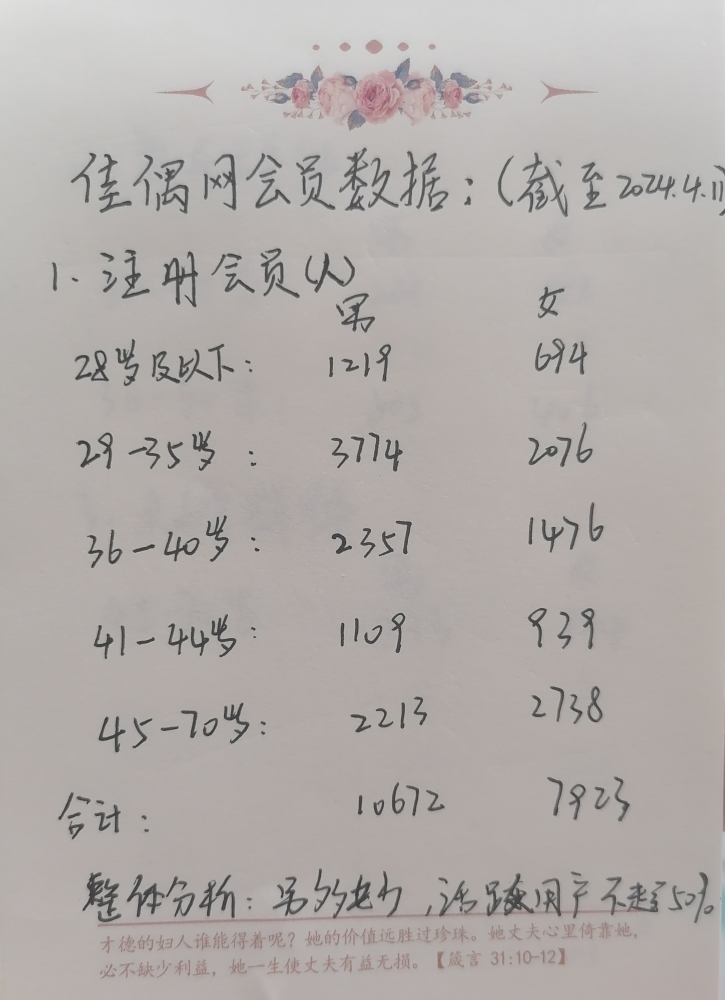 佳偶网会员数据：(截至2024.4.11)
1. 注册会员(人)
男 女
28岁及以下： 1219 694
29-35岁： 3774 2076
36-40岁： 2357 1476
41-44岁： 1109 939
45-70岁： 2213 2738
合计： 10672 7923
整体分析：男多女少，活跃用户不超50%
才德的妇人谁能得着呢？她的价值远胜过珍珠。她丈夫心里倚靠她，
必不缺少利益，她一生使丈夫有益无损。【箴言 31:10-12】